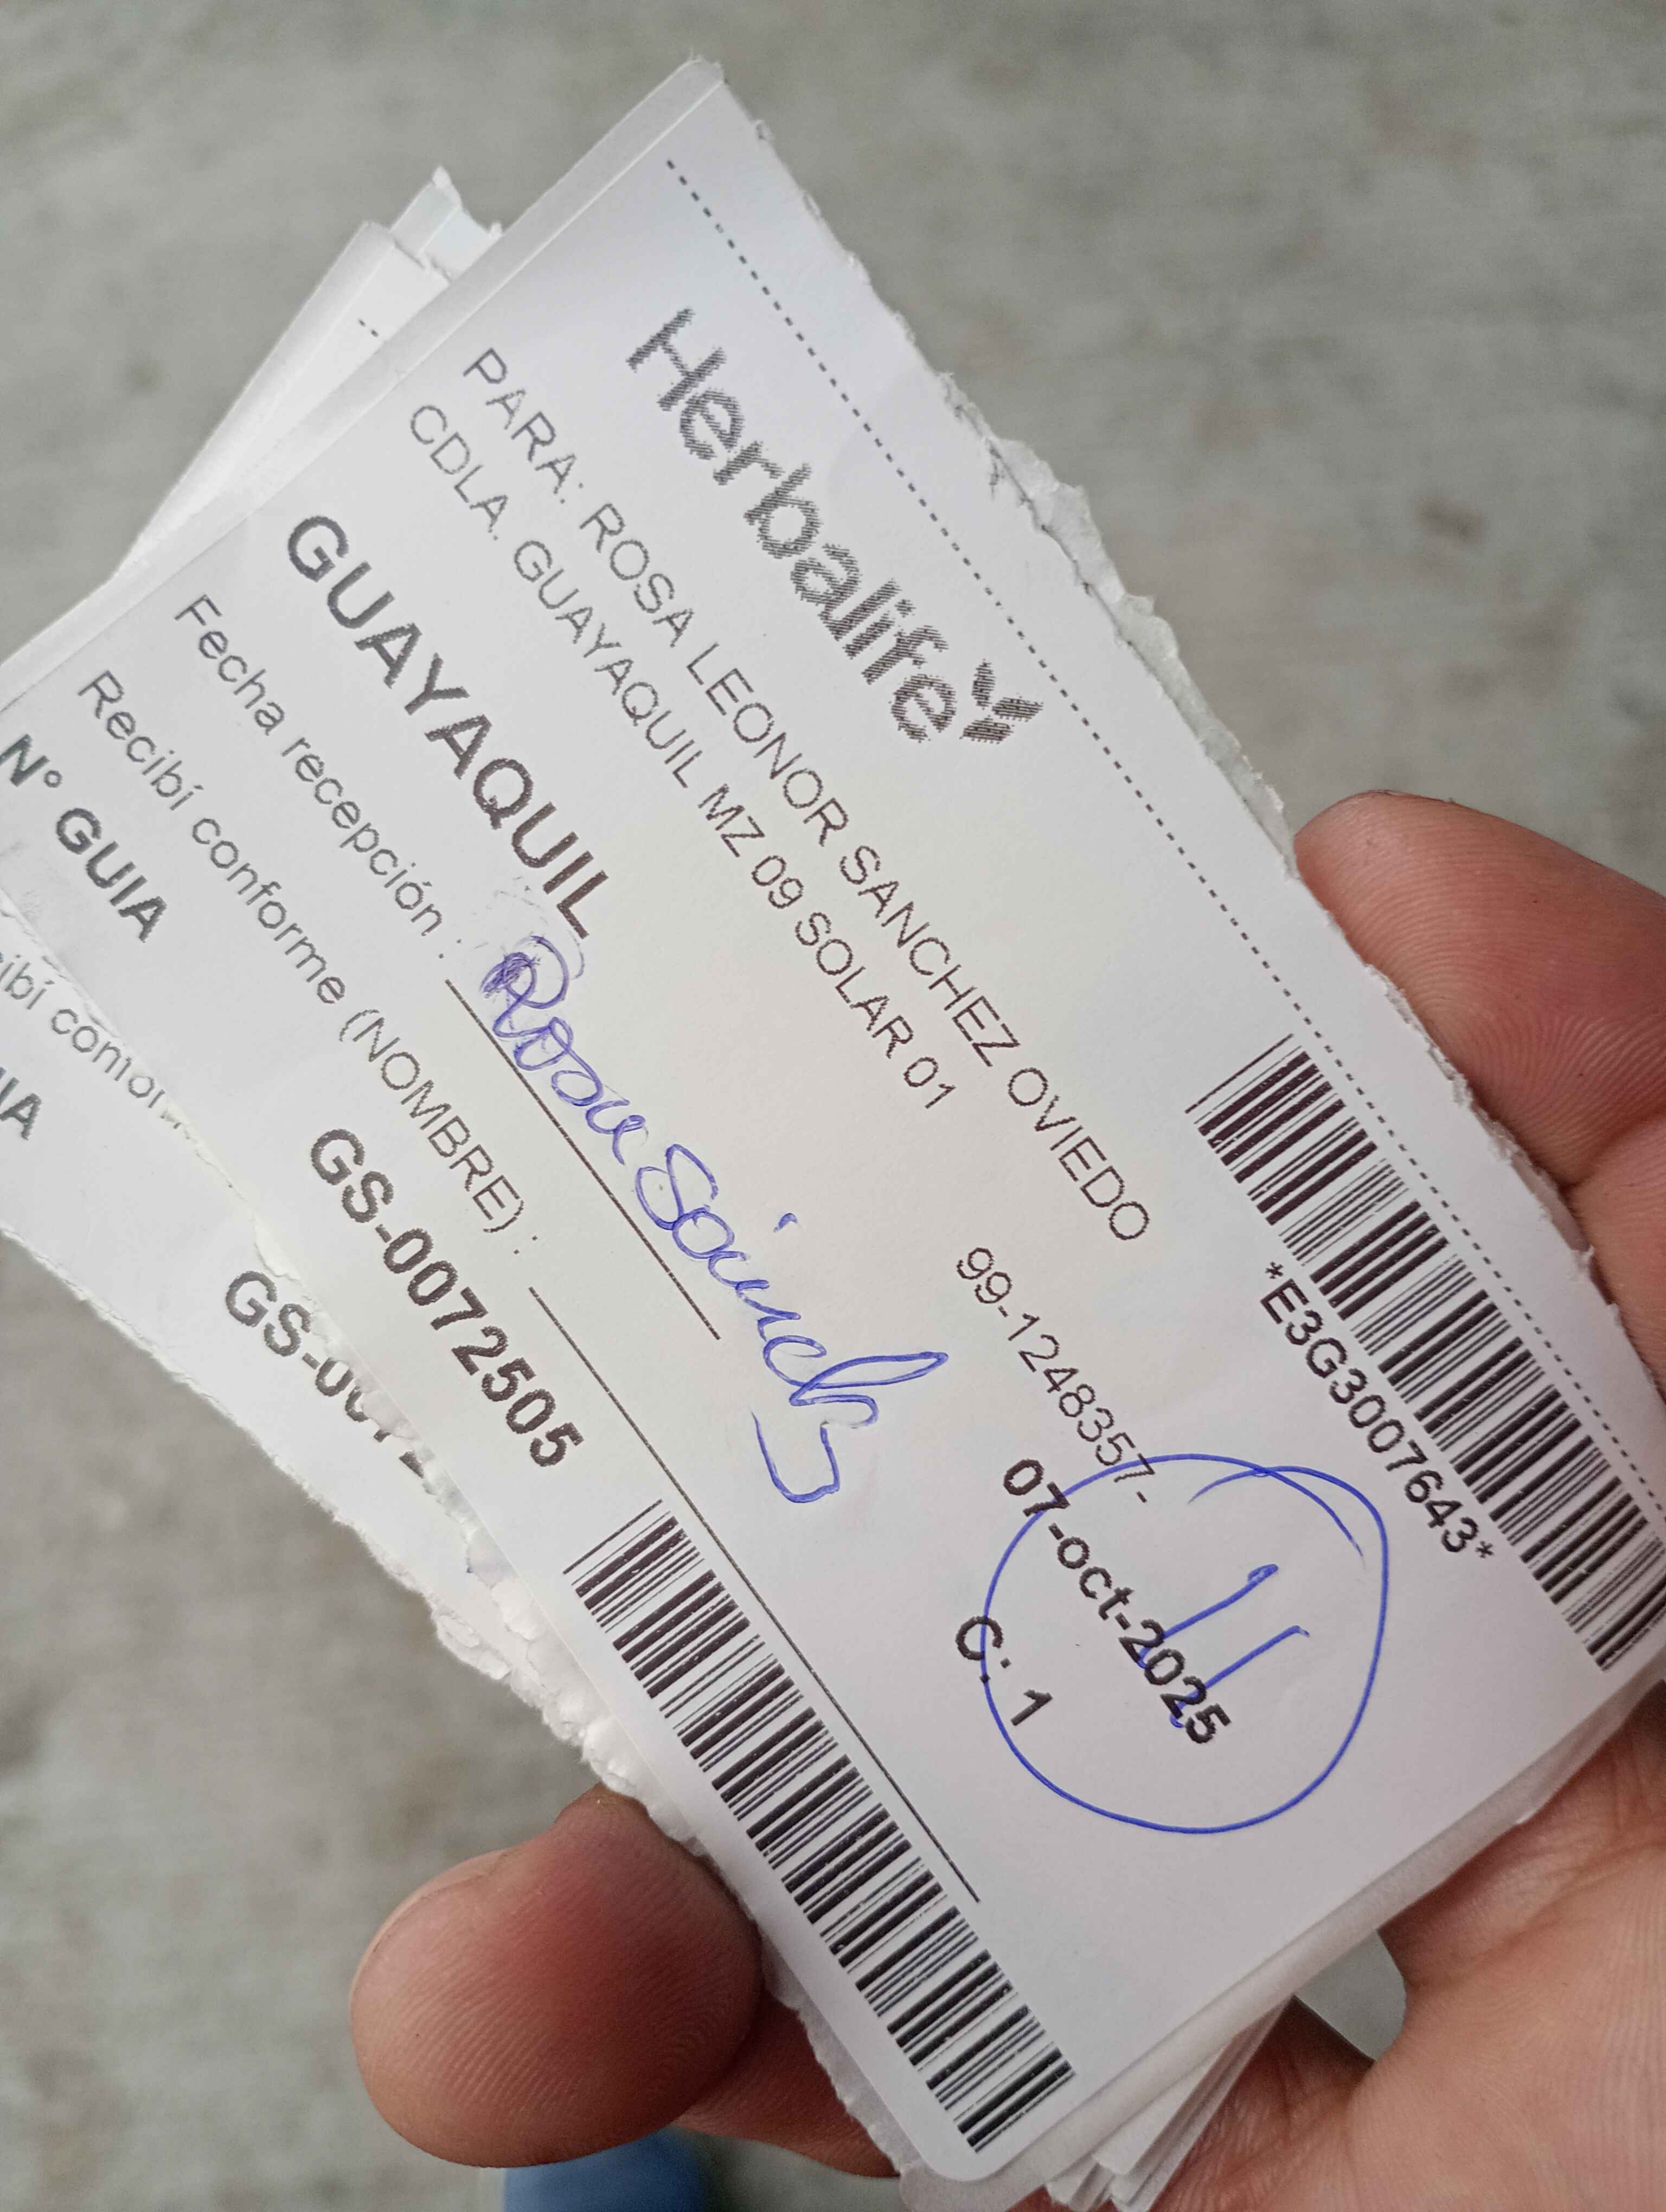 Herbalife
*E3G3007643*
PARA: ROSA LEONOR SANCHEZ OVIEDO
CDLA. GUAYAQUIL MZ 09 SOLAR 01
99-1248357-
07-oct-2025
11
GUAYAQUIL
C: 1
Fecha recepción :
Rosa Sánchez
Recibí conforme (NOMBRE) :
N° GUIA
GS-0072505